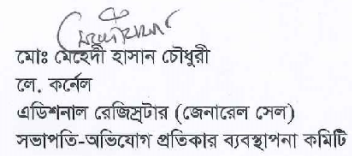 মোঃ মেহেদী হাসান চৌধুরী
লে. কর্নেল
এডিশনাল রেজিস্ট্রার (জেনারেল সেল)
সভাপতি-অভিযোগ প্রতিকার ব্যবস্থাপনা কমিটি